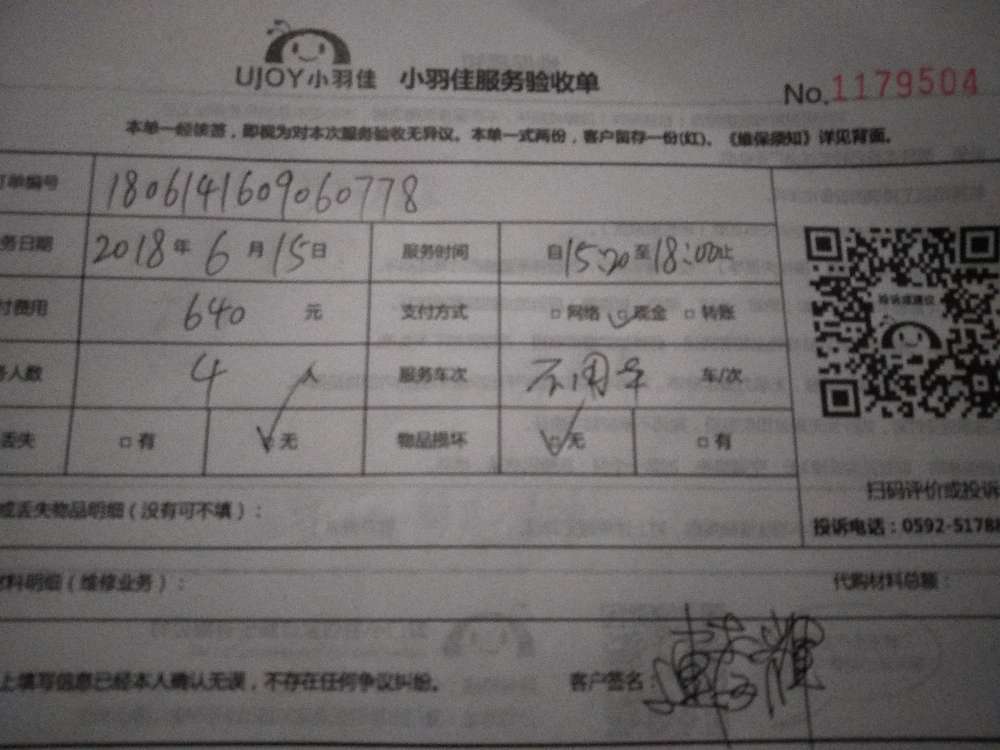 UJOY小羽佳 小羽佳服务验收单 No.1179504
本单一经签，即视为对本次服务验收无异议。本单一式两份，客户留存一份(红)。《维保须知》详见背面。
单编号 1806141609060778
务日期 2018年6月15日 服务时间 自15:20至18:00止
付费用 640 元 支付方式 网络 现金 转账
务人数 4 人 服务车次 不用车 车/次
投诉或建议
丢失 有 无 物品损坏 无 有
扫码评价或投诉
或丢失物品明细（没有可不填）： 投诉电话：0592-5178
材料明细（维修业务）： 代购材料总额：
上填写信息已经本人确认无误，不存在任何争议纠纷。 客户签名